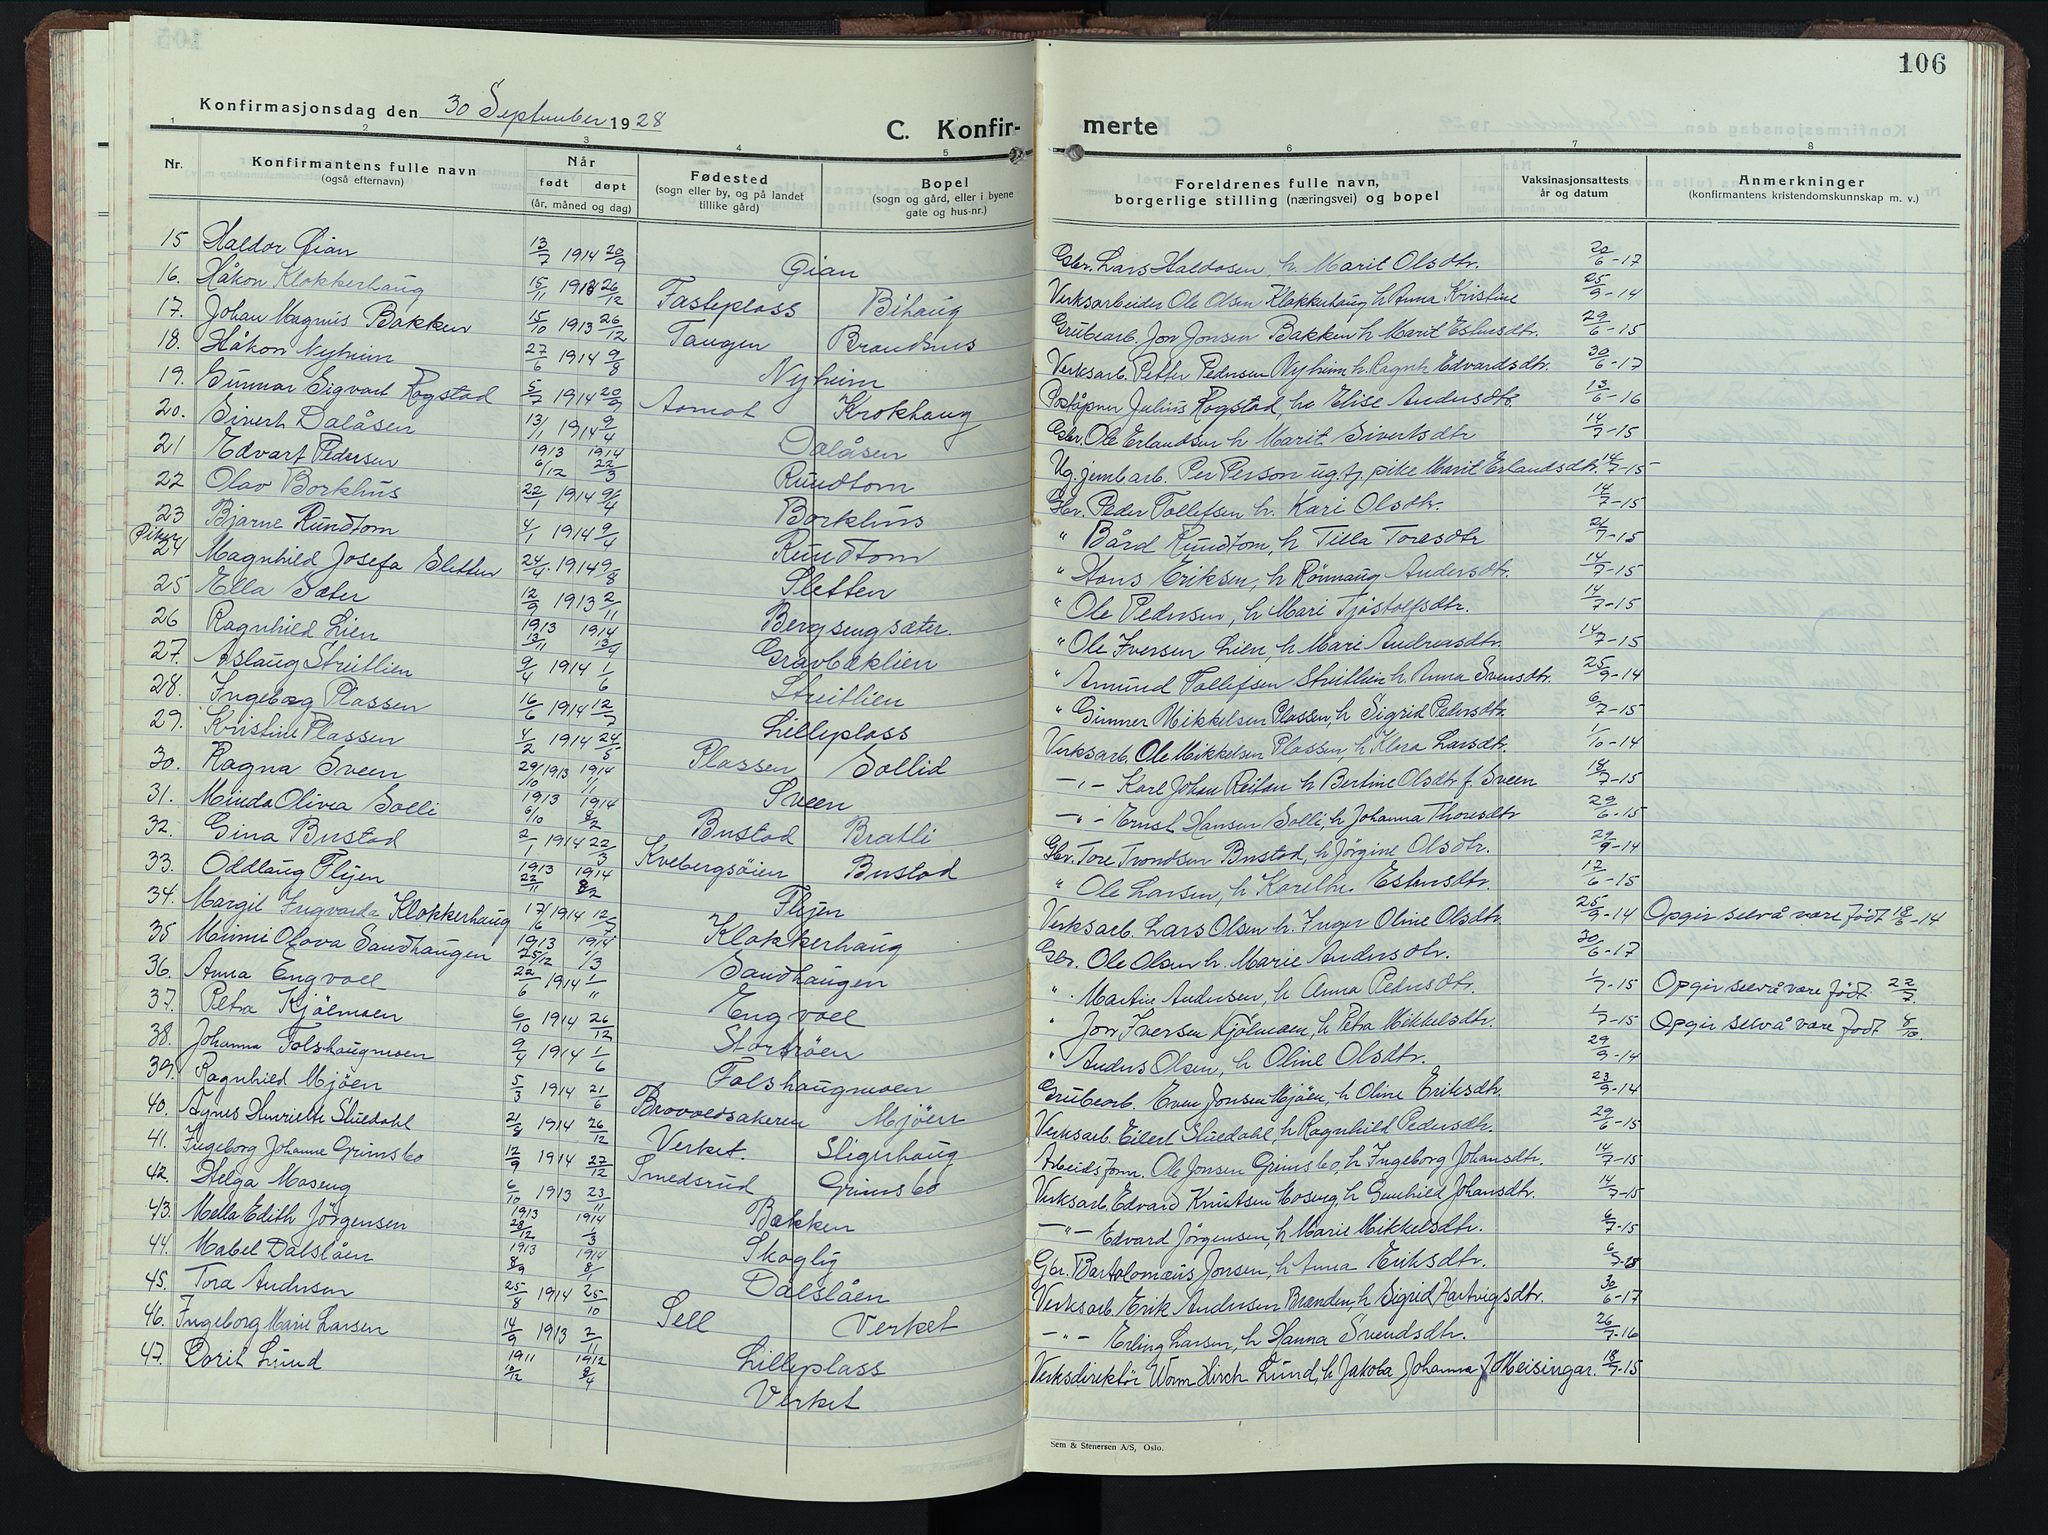 106
Konfirmasjonsdag den 30 September 1928
C. Konfir-
merte
1 2 3 4 5 6 7 8
Nr.
Konfirmantens fulle navn
(også efternavn)
Når
født døpt
(år, måned og dag)
Fødested
(sogn eller by, og på landet
tillike gård)
Bopel
(sogn og gård, eller i byene
gate og hus-nr.)
Foreldrenes fulle navn,
borgerlige stilling (næringsvei) og bopel
Vaksinasjonsattests
år og datum
Anmerkninger
(konfirmantens kristendomskunnskap m. v.)
15 Haldor Gian 13/7 1914 20/9 Gian Gbr. Lars Haldosen h. Marit Olsdtr. 20/6-17
16. Håkon Klokkerhaug 15/11 1913 26/12 Tasteplass Bihaug Verksarbeider Ole Olsen Klokkerhaug h Anna Kristine 25/9-14
17. Johan Magnus Bakken 15/10 1913 26/12 Tangen Brandsnes Grubearb. Jon Jonsen Bakken h Marit Estensdtr. 29/6-15
18. Håkon Nyheim 27/6 1914 9/8 Nyheim Verksarb. Petter Pedersen Nyheim h. Ragnh Edvardsdtr. 30/6-17
19. Gunnar Sigvart Rogstad 5/7 1914 20/9 Aamot Krokhaug Poståpner Julius Rogstad, h Elise Andersdtr. 13/6-16
20. Sivert Dalåsen 13/1 1914 9/4 Dalåsen Gbr. Ole Erlandsen h Marit Sivertsdtr 14/7-15
21 Edvart Pedersen 1913 6/12 1914 22/3 Rundtom Ug. jernb arb. Per Person ug. tj. pike Marit Erlandsdtr. 14/7-15
22 Olav Borkhus 22/1 1914 9/4 Borkhus Gbr. Peder Tollefsen h. Kari Olsdtr. 14/7-15
23 Bjarne Rundtom 4/1 1914 9/4 Rundtom " Bård Rundtom, h Tilla Toresdtr 21/7-15
Piker
24 Magnhild Josefa Sletten 24/4. 1914 9/8 Sletten " Hans Eriksen, h Rønnaug Andersdtr. 14/7-15
25 Ella Sæter 12/9 1913 2/11 Bergsengsæter. " Ole Pedersen, h Mari Tjøstolfsdtr. 14/7-15
26 Ragnhild Lien 1913 13/11 1914 13/4 Gravbæklien " Ole Iversen Lien, h Mari Andreasdtr. 14/7-15
27. Aslaug Streitlien 9/4 1914 1/6 Streitlien " Amund Tollefsen Streitlien h. Anna Svensdtr. 25/9-14
28. Ingeborg Plassen 16/6 1914 12/7 Lilleplass " Gunner Mikkelsen Plassen, h Sigrid Pedersdtr. 6/7-15
29. Kristine Plassen 4/2 1914 24/5 Plassen Sollid Verksarb. Ole Mikkelsen Plassen, h Klara Larsdtr. 1/10-14
30. Ragna Sveen 29/10 1913 1914 1/1 Sveen -"- Karl Johan Reitan h Bertine Olsdtr f. Sveen 18/7-15
31. Minda Olivia Solli 1913 6/10 1914 8/2 Bustad Bratli -"- Ernst Hansen Solli, h Johanna Thoresdtr 29/6-15
32. Gina Bustad 2/1 1914 22/3 Kvebergsøien Bustad Gbr. Tore Trondsen Bustad, h Jørgine Olsdtr. 29/9-14
33. Oddlaug Flyen 1913 22/11 1914 8/2 Flyen " Ole Larsen, h Karethe Estensdtr. 17/6-15
34. Margit Ingvarda Klokkerhaug 17/6 1914 12/7 Klokkerhaug Verksarb. Lars Olsen h. Inger Oline Olsdtr. 25/9-14 Opgir selv å være født 18/6-14
35 Mimmi Olava Sandhaugen 1913 25/12 1914 1/3 Sandhaugen Gbr. Ole Olsen h. Marie Andersdtr. 30/6-17
36. Anna Engvoll 22/6 1914 1/11 Engvoll " Martin Andersen, h Anna Pedersdtr. 1/7-15 Opgir selv å være født 22/7.
37. Petra Kjølmoen 6/10 1914 26/12 Storrøen " Jon Iversen Kjølmoen, h Petra Mikkelsdtr. 1/7-15 Opgir selv å være født 4/10.
38. Johanna Folshaugmoen 9/4 1914 1/6 Folshaugmoen " Anders Olsen, h Oline Olsdtr. 29/9-14
39. Ragnhild Mjøen 5/3 1914 21/6 Brovoldsakeren Mjøen Grubearb. Even Jonsen Mjøen, h Oline Eriksdtr. 23/9-14
40. Agnes Henriette Stuedahl 21/8 1914 26/12 Verket. Stigerhaug Verksarb. Eilert Stuedahl, h Ragnhild Pedersdtr. 29/6-15
41. Ingeborg Johanne Grimsbo 12/9 1914 27/12 Smedsrud Grimsbo Arbeidsform. Ole Jonsen Grimsbo, h Ingeborg Johansdtr. 14/7-15
42. Helga Moseng 6/10 1913 23/11 Bækken Verksarb. Edvard Knutsen Moseng, h Gunhild Johansdtr. 14/7-15
43. Mella Edith Jørgensen 1913 28/12 1914 1/3 Skogly -"- Edvard Jørgensen, h Marie Mikkelsdtr. 6/7-15
44. Mabel Dalslåen 1913 8/9 1914 8/1 Dalslåen Gbr. Bartolomæus Jonsen, h Anna Eriksdtr. 6/7-15
45. Tora Andersen 25/8 1914 25/10 Sell Verket Verksarb. Erik Andersen Brænden, h Sigrid Hartvigsdtr. 30/6-17
46. Ingeborg Marie Larsen 14/9 1913 2/11 Lilleplass -"- Erling Larsen, h Hanna Svendsdtr. 26/7-16
47. Dorit Lund 1911 10/12 1912 8/4 Verket Verksdirektør Worm Hirch Lund, h Jakoba Johanna f Meisingar. 18/7-15
Sem & Stenersen A/S, Oslo.